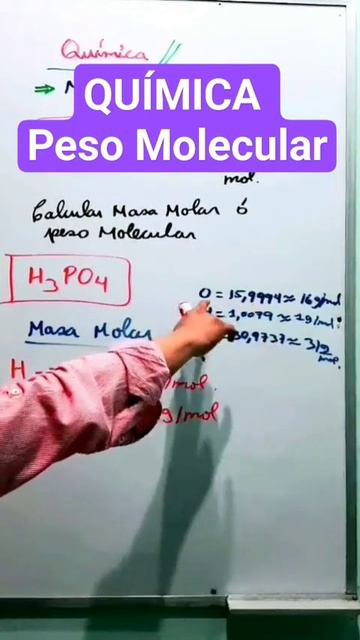 Química
QUÍMICA
Peso Molecular
mol.
Calcular Masa Molar ó
peso Molecular
H3PO4
O = 15,9994 ≈ 16 g/mol
= 1,0079 ≈ 1g/mol
Masa Molar
30,9737 ≈ 31g
mol.
H
/mol.
g/mol